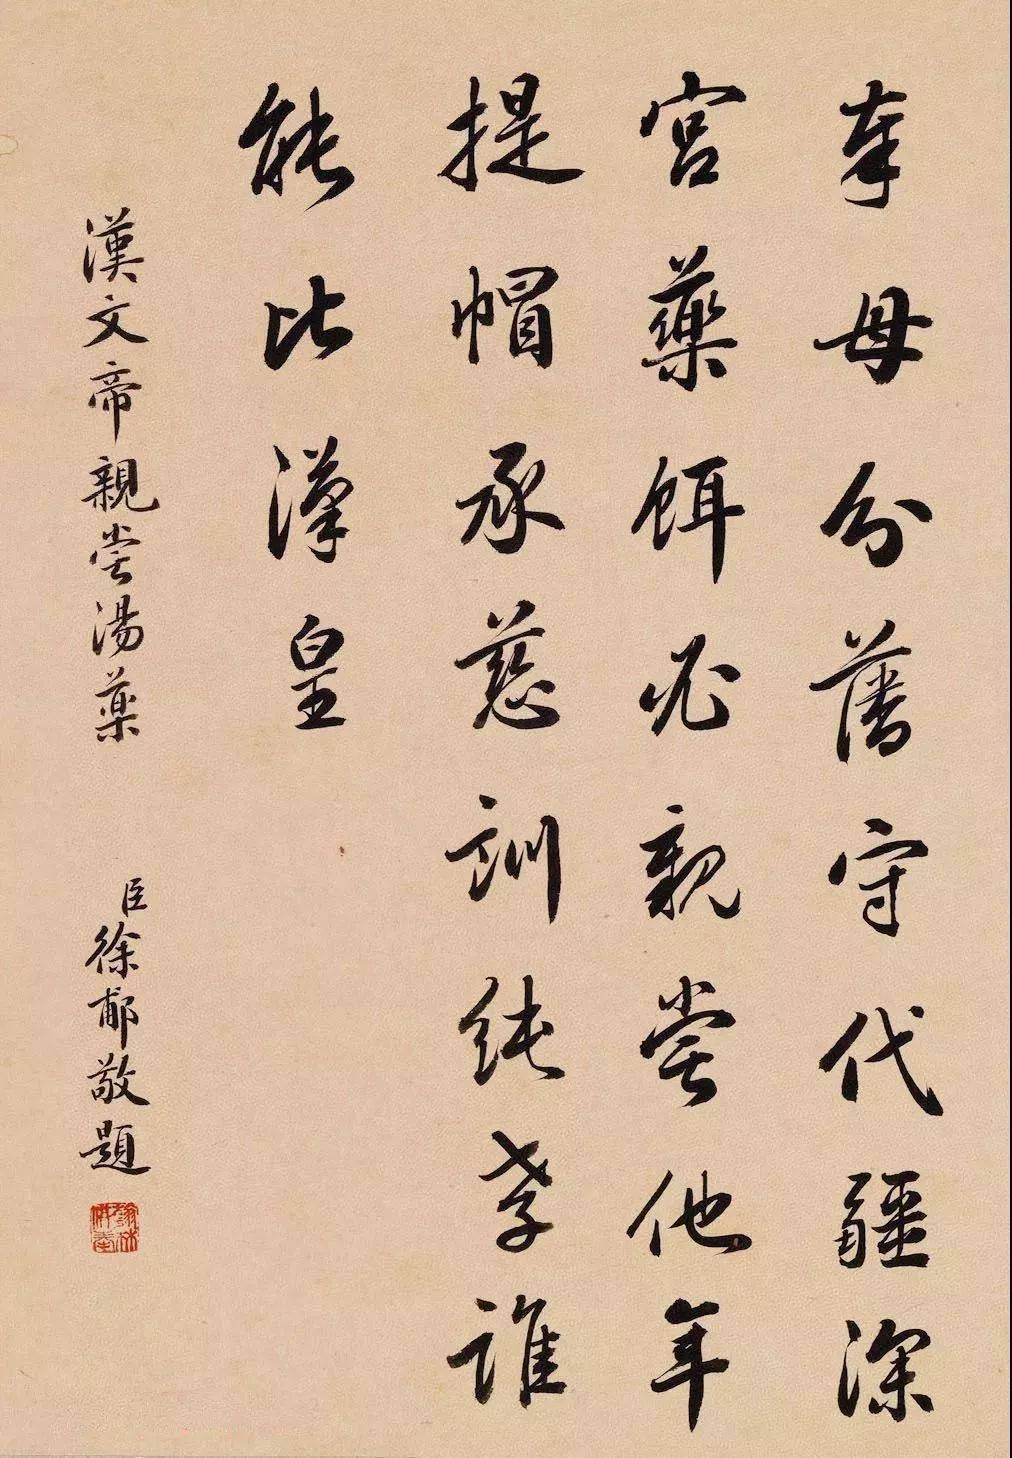 奉母分藩守代疆深
宮藥餌必親嘗他年
提帽承慈訓純孝誰
能比漢皇
漢文帝親嘗湯藥
臣徐郙敬題